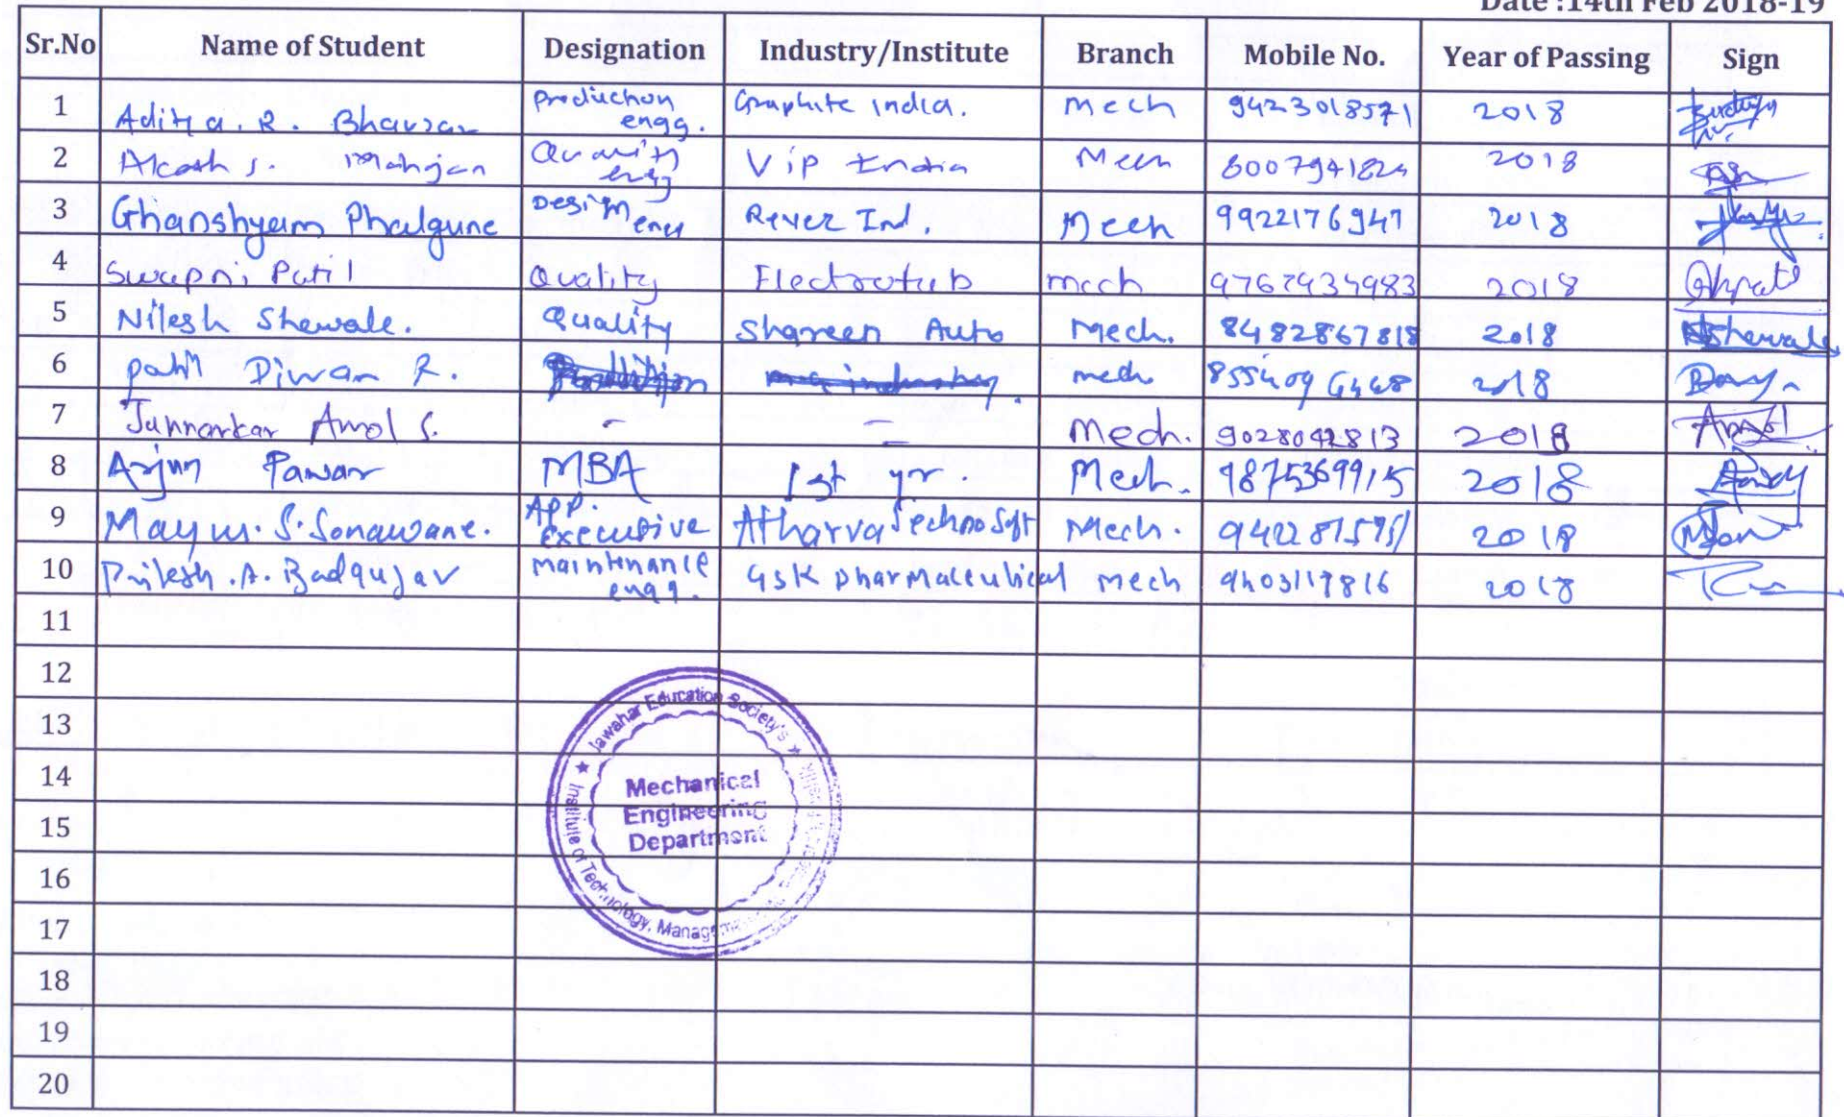 Date :14th Feb 2018-19
Sr.No Name of Student Designation Industry/Institute Branch Mobile No. Year of Passing Sign
1 Aditya. R. Bhavsar Production engg. Graphite India. Mech 9423018571 2018
2 Akash S. Mahajan Quality engg Vip India Mech 8007941824 2018
3 Ghanshyam Phalgune Design Engg Rever Ind. Mech 9922176947 2018
4 Swapnil Patil Quality Electrotub mech 9767434983 2018
5 Nilesh Shewale. Quality Shareen Auto Mech. 8482867818 2018 NShewale
6 patil Diwan R. mech 2018
7 Junnarkar Amol S. - - Mech. 9028042813 2018
8 Arjun Pawar MBA 1st yr. Mech. 9875369915 2018
9 S. Sonawane. APP. executive Atharva Techno Soft Mech. 2018
10 A. Badgujar Maintenance engg. GSK pharmaceutical Mech 9403117816 2018
11
12
13
14
15
16
17
18
19
20
★ Jawahar Education Society's ★
Institute of Technology, Management
Mechanical
Engineering
Department